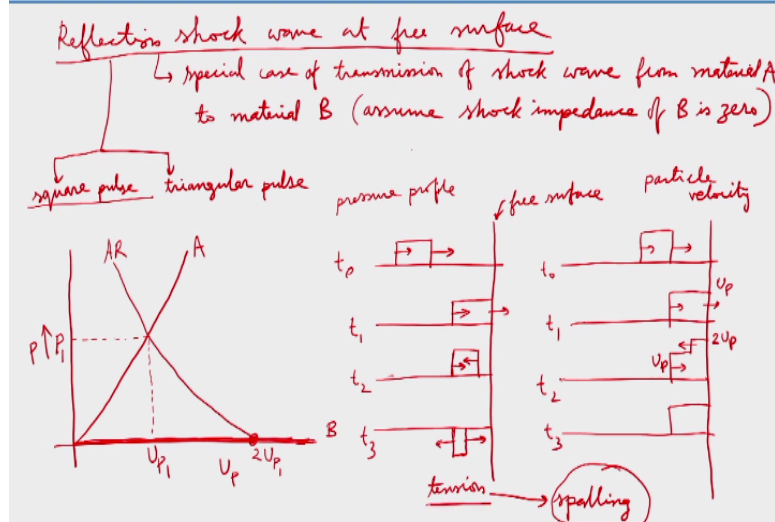 Reflection shock wave at free surface
↳ special case of transmission of shock wave from material A
to material B (assume shock impedance of B is zero)
square pulse triangular pulse
pressure profile
free surface
particle velocity
AR A
P ↑ P₁
U_P₁ U_P 2U_P₁ B
t₀
t₁
t₂
t₃
t₀
t₁ U_P
t₂ U_P 2U_P
t₃
tension → spalling